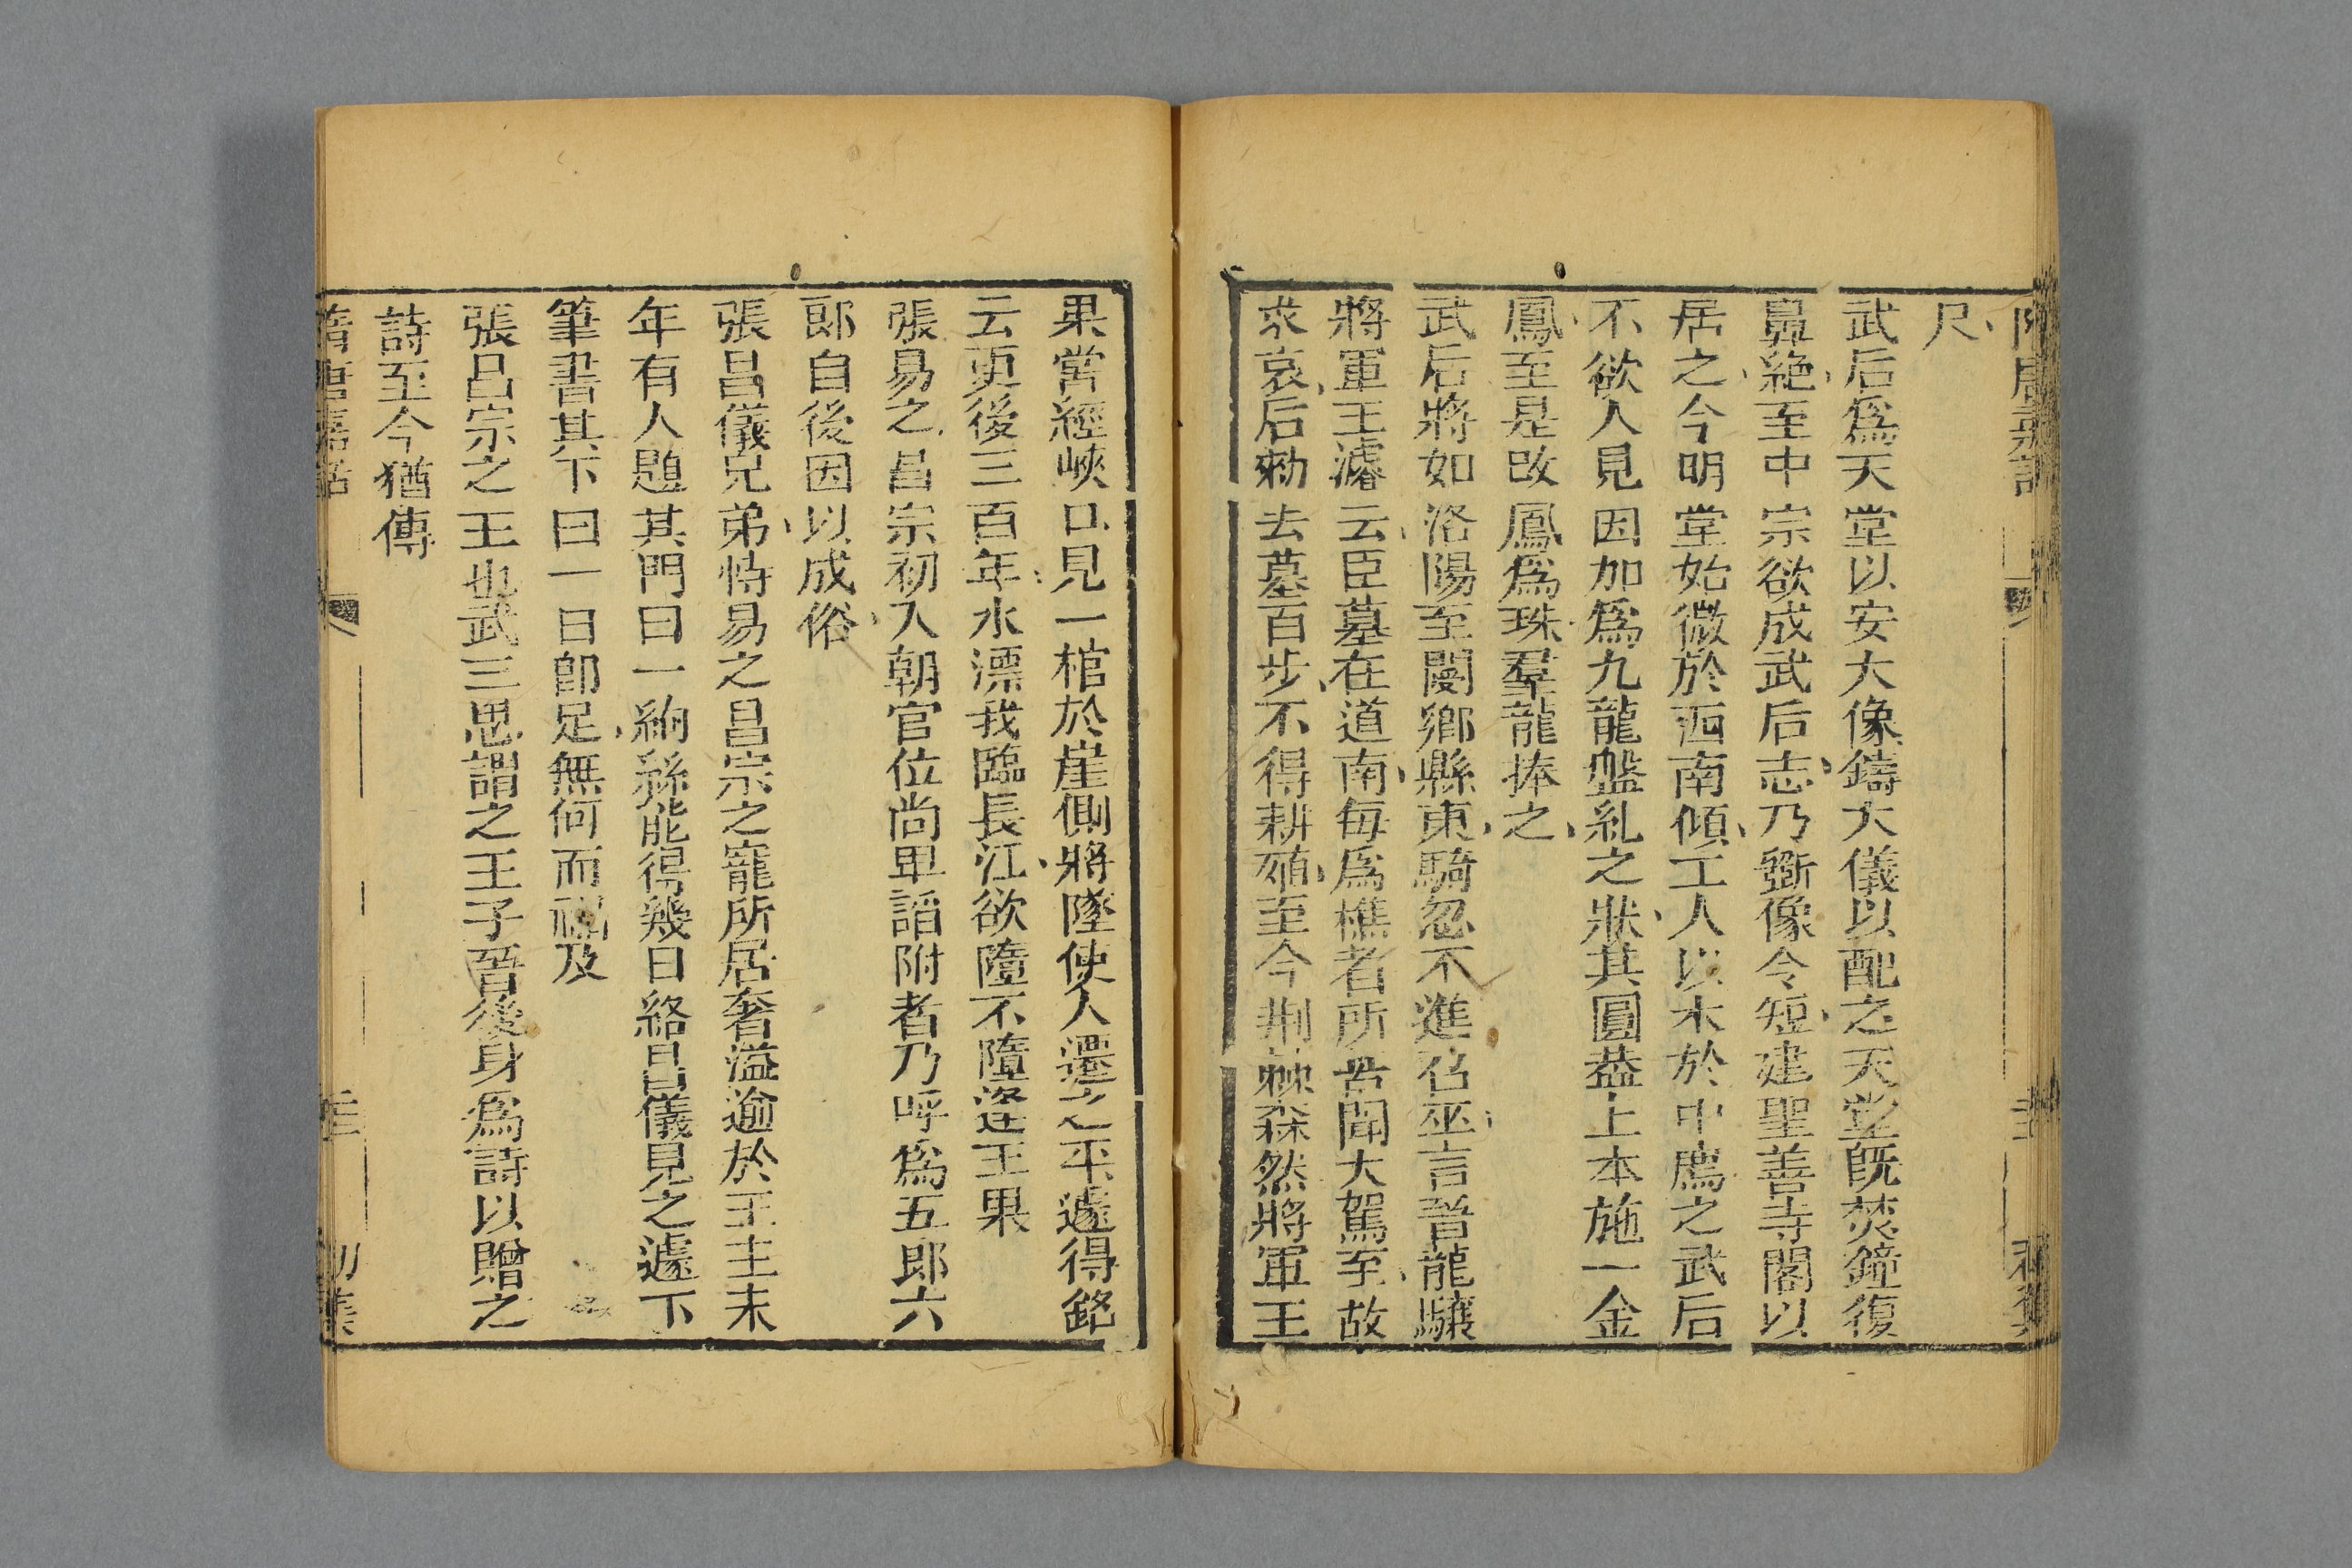 隋唐嘉話
尺
武后爲天堂以安大像鑄大儀以配之天堂旣焚鐘復
鼻絕至中宗欲成武后志乃斲像令短建聖善寺閣以
居之今明堂始微於西南傾工人以木於中廌之武后
不欲人見因加爲九龍盤糺之狀其圓葢上本施一金
鳳至是改鳳爲珠羣龍捧之
武后將如洛陽至閿鄉縣東騎忽不進召巫言晉龍驤
將軍王濬云臣墓在道南每爲樵者所苦聞大駕至故
求哀后勑去墓百步不得耕殖至今荆棘森然將軍王
果嘗經峽口見一棺於崖側將墜使人遷之平遽得銘
云更後三百年水漂我臨長江欲隨不隨逢王果
張易之昌宗初入朝官位尚卑諂附者乃呼爲五郎六
郎自後因以成俗
張昌儀兄弟恃易之昌宗之寵所居奢溢逾於王主末
年有人題其門曰一絇絲能得幾日絡昌儀見之遽下
筆書其下曰一日卽足無何而禍及
張昌宗之王也武三思謂之王子晉後身爲詩以贈之
詩至今猶傳
隋唐嘉話